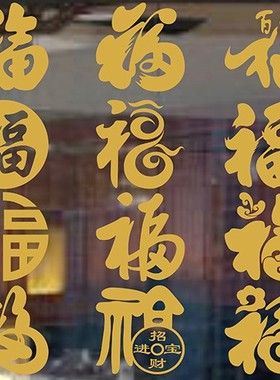 福 福 百福
福 福 福
福 福 福
福 福 福
招
进 宝
财